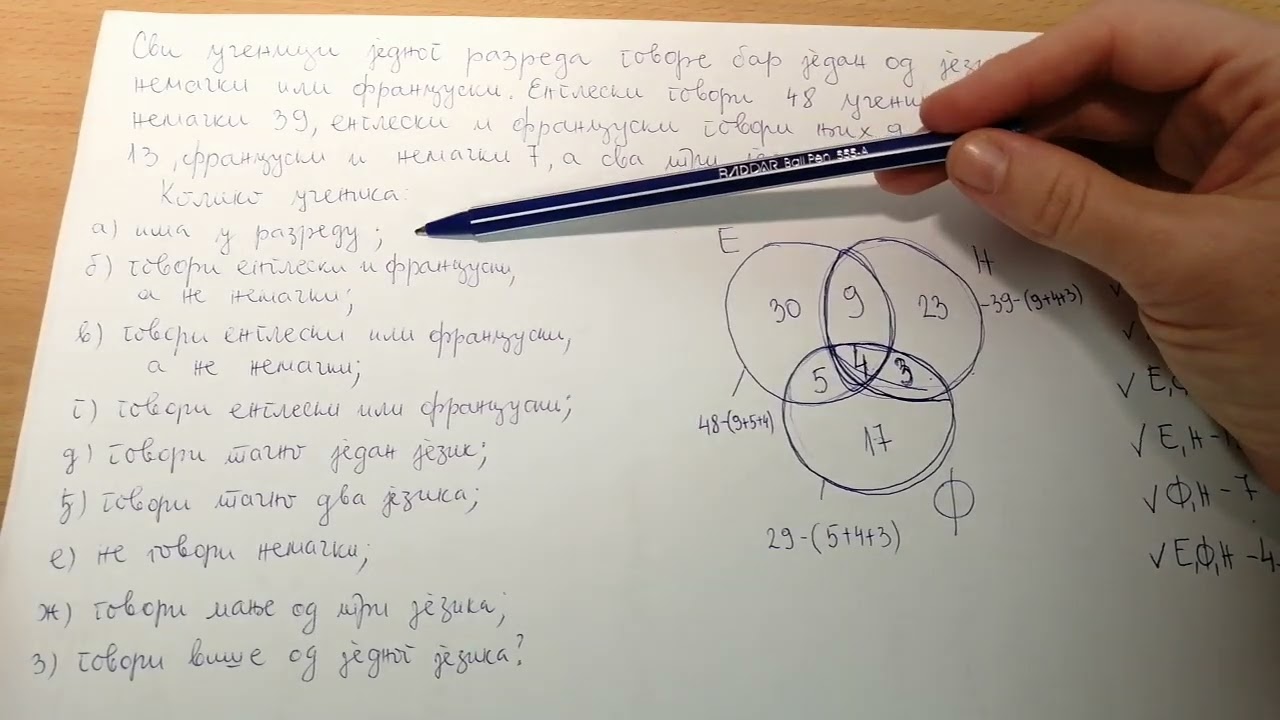 Сви ученици једног разреда говоре бар један од
немачки или француски. Енглески говори 48
немачки 39, енглески и француски говори њих 9
13, француски и немачки 7, а сва три
Колико ученика:
а) има у разреду;
б) говори енглески и француски,
а не немачки;
в) говори енглески или француски,
а не немачки;
г) говори енглески или француски;
д) говори тачно један језик;
ђ) говори тачно два језика;
е) не говори немачки;
ж) говори мање од три језика;
з) говори више од једног језика?
RADDAR Ball Pen 555-A
Е
Н
30
9
23
-39-(9+4+3)
5
4
3
48-(9+5+4)
17
Ф
29-(5+4+3)
✓
✓
✓ Е,
✓ Е,Н -
✓ Ф,Н - 7
✓ Е,Ф,Н - 4